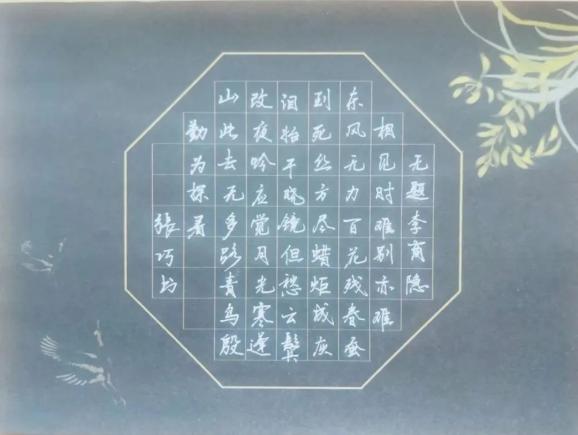 无题李商隐
相见时难别亦难
东风无力百花残春蚕
到死丝方尽蜡炬成灰
泪始干晓镜但愁云鬓
改夜吟应觉月光寒蓬
山此去无多路青鸟殷
勤为探看
張巧坊